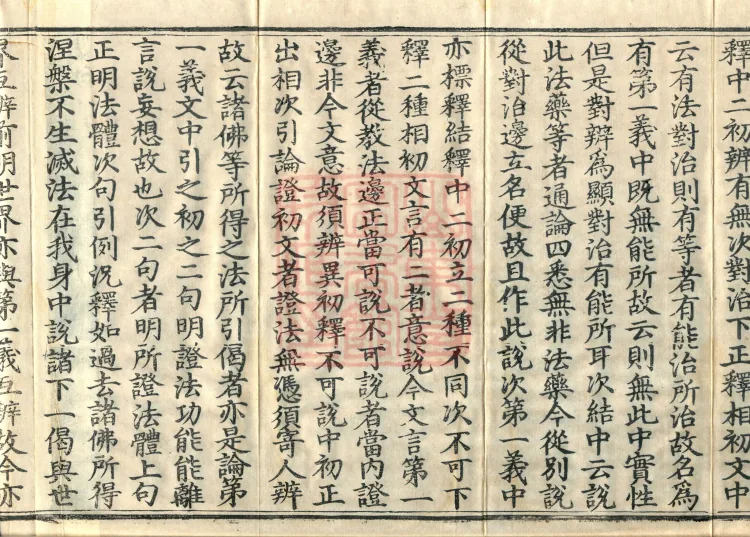 釋中二初辨有無次對治下正釋相初文中
云有法對治則有等者有能治所治故名爲
有第一義中既無能所故云則無此中實性
但是對辨爲顯對治有能所耳次結中云說
此法藥等者通論四悉無非法藥今從別說
從對治邊立名便故且作此說次第一義中
亦標釋結釋中二初立二種不同次不可下
釋二種相初文言有二者意說今文言第一
義者從教法邊正當可說不可說者當內證
邊非今文意故須辨異初釋不可說中初正
出相次引論證初文者證法無憑須寄人辨
故云諸佛等所得之法所引偈者亦是論第
一義文中引之初之二句明證法功能能離
言說妄想故也次二句者明所證法體上句
正明法體次句引例況釋如過去諸佛所得
涅槃不生滅法在我身中說諸下一偈與世
界互辨前明世界亦與第一義互辨故今亦